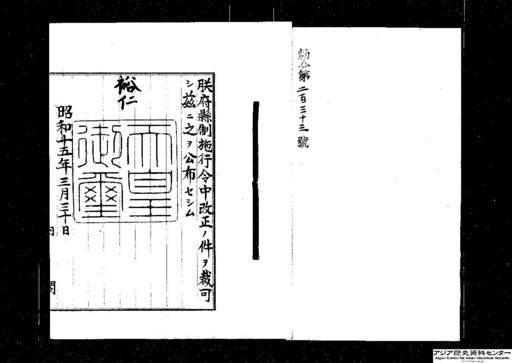 勅令第二百三十三號
朕府縣制施行令中改正ノ件ヲ裁可
シ茲ニ之ヲ公布セシム
裕仁
天皇御璽
昭和十五年三月三十日
内
閣
アジア歴史資料センター
Japan Center for Asian Historical Records